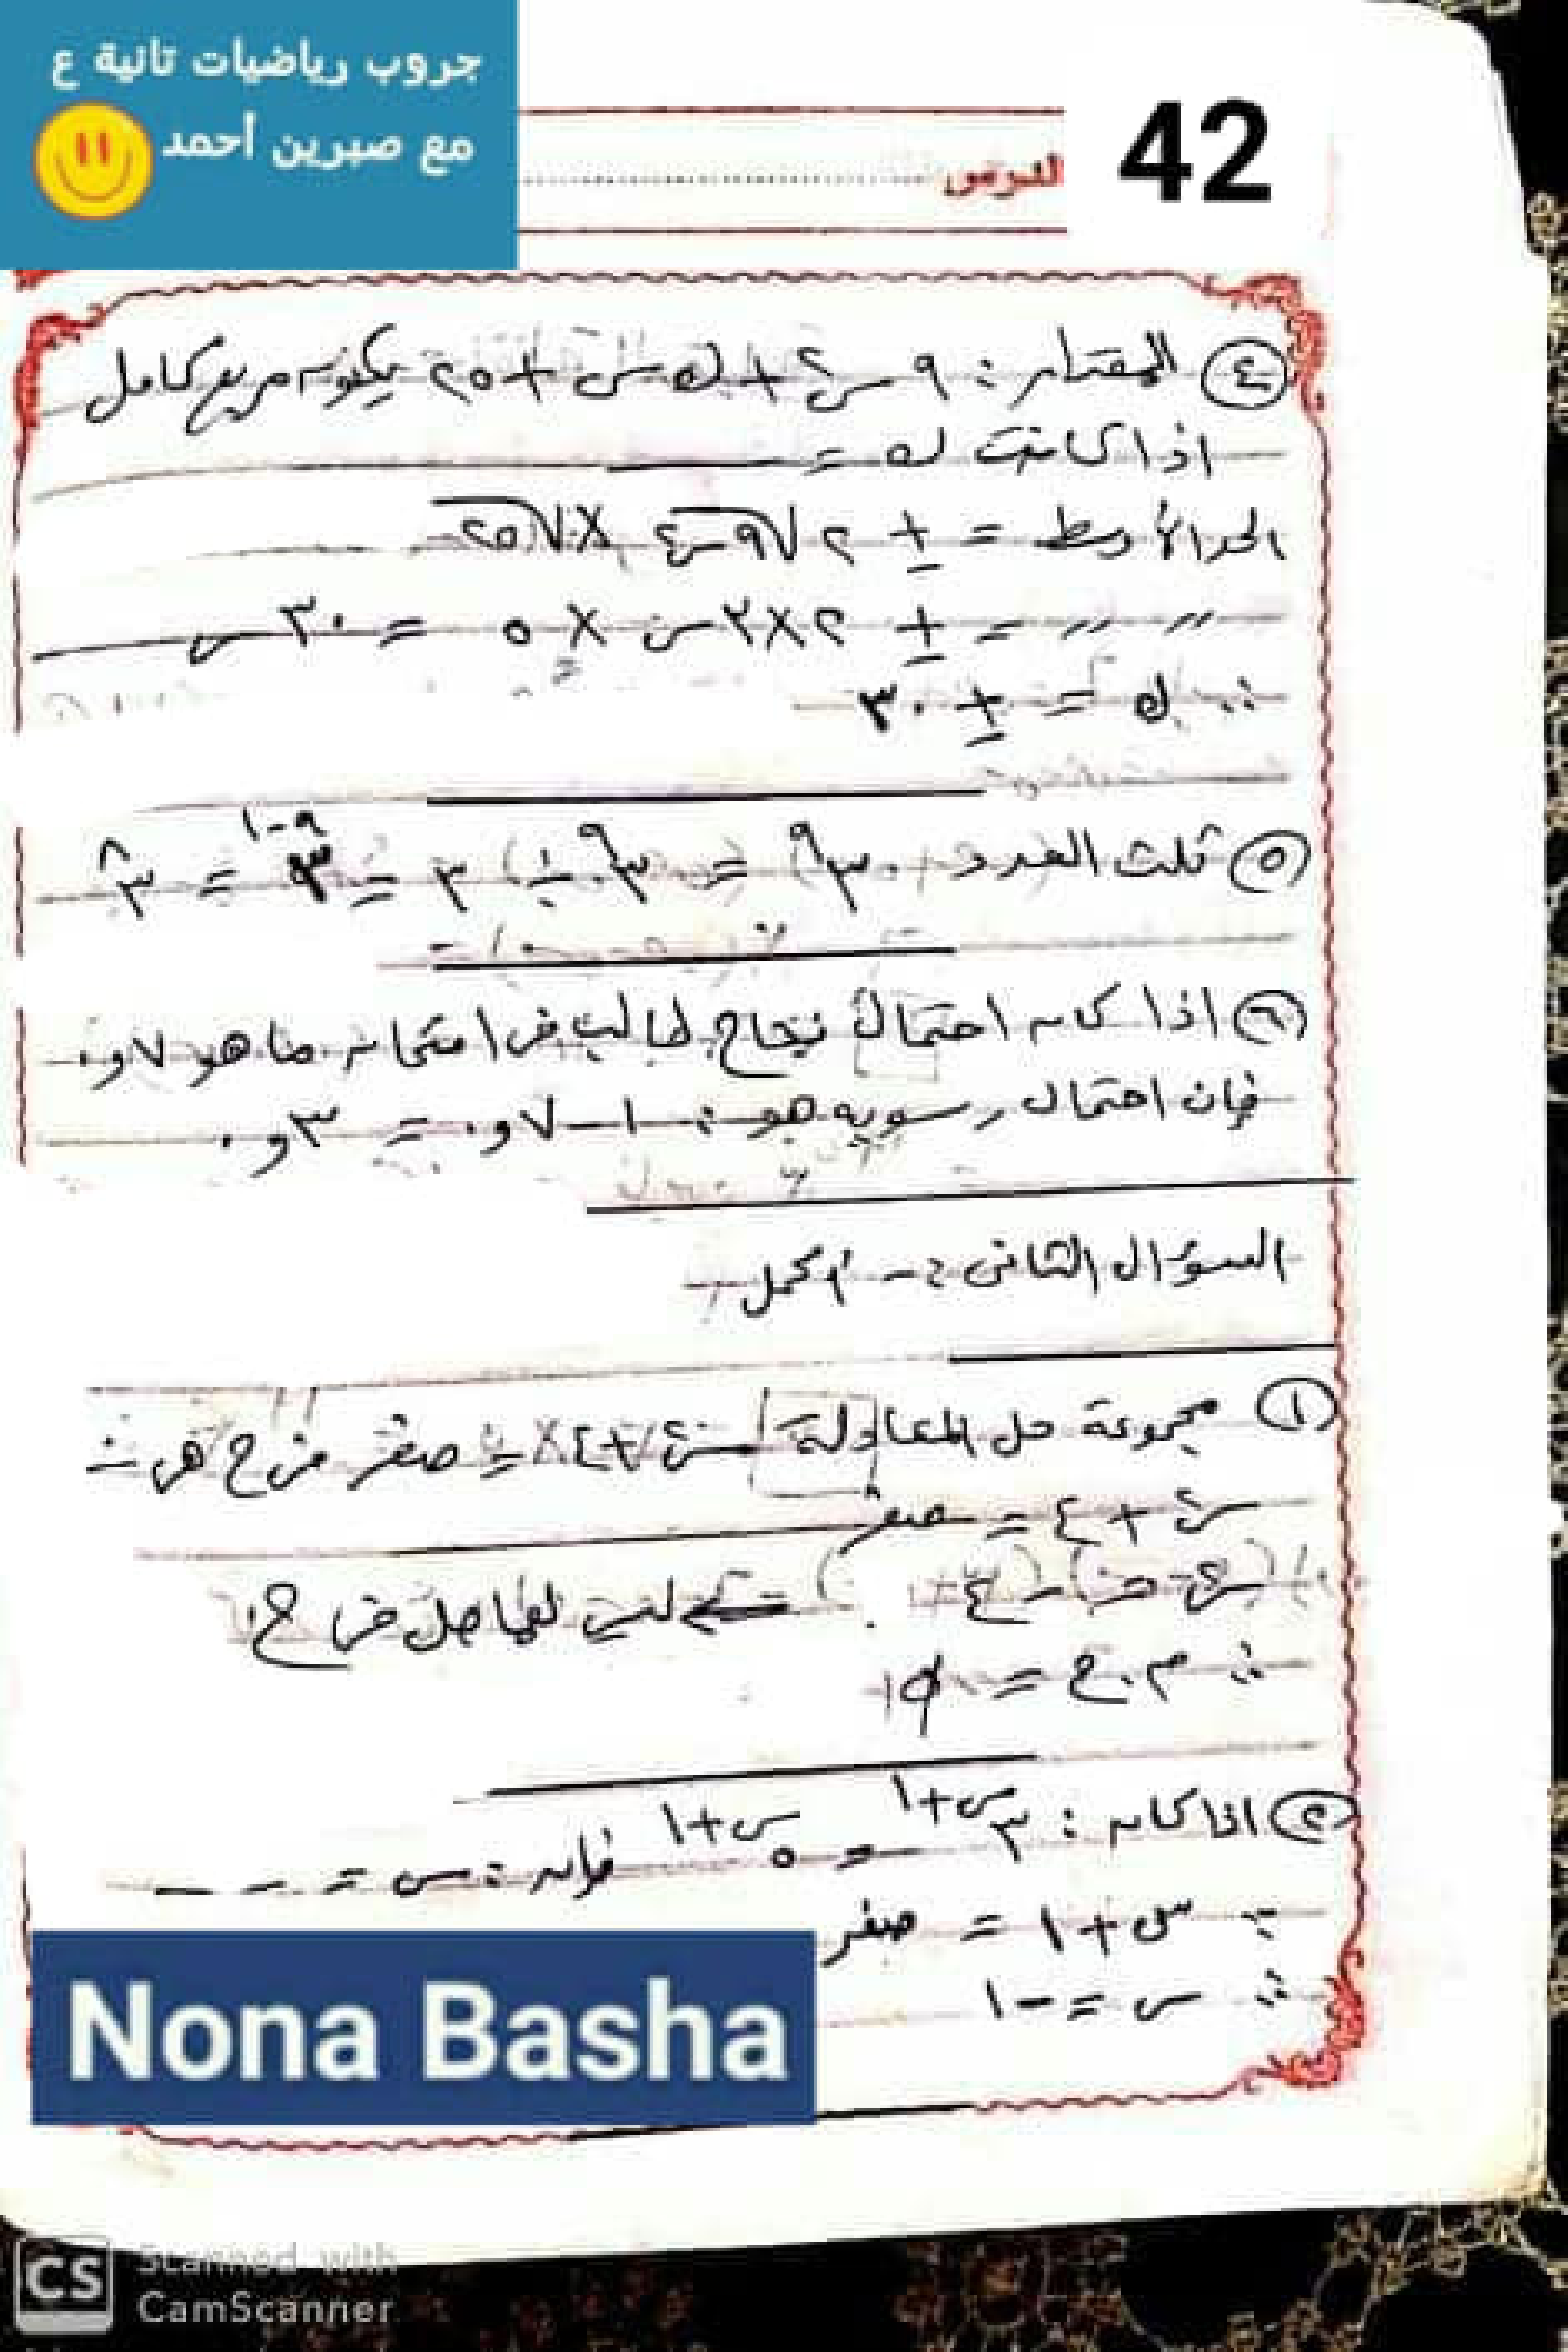 جروب رياضيات تانية ع
مع صبرين أحمد
42
الدرس
④ المقدار : ٩س٢ + ك س + ٢٥ يكون مربع كامل
اذا كانت ك =
الحد الأوسط = ± ٢ √٩س٢ × √٢٥
〃 〃 = ± ٢×٣س × ٥ = ٣٠ س
∴ ك = ± ٣٠
⑤ ثلث العدد ٣^٩ = ٣^٩ ÷ ٣ = ٣^٩-١ = ٣^٨
⑥ اذا كان احتمال نجاح طالب فى امتحان ما هو ٧و٠
فإن احتمال رسوبه هو : ١ - ٧و٠ = ٣و٠
السؤال الثانى :- أكمل
① مجموعة حل المعادلة س٢ + ٤ = صفر فى ح هى :
س٢ + ٤ = صفر
س٢ = - ٤ ليس لها حل فى ح
∴ م.ح = φ
② اذا كان : ٣^س+١ = ٥^س+١ فإن : س = ---
∵ س + ١ = صفر
∴ س = -١
Nona Basha
CS Scanned with
CamScanner